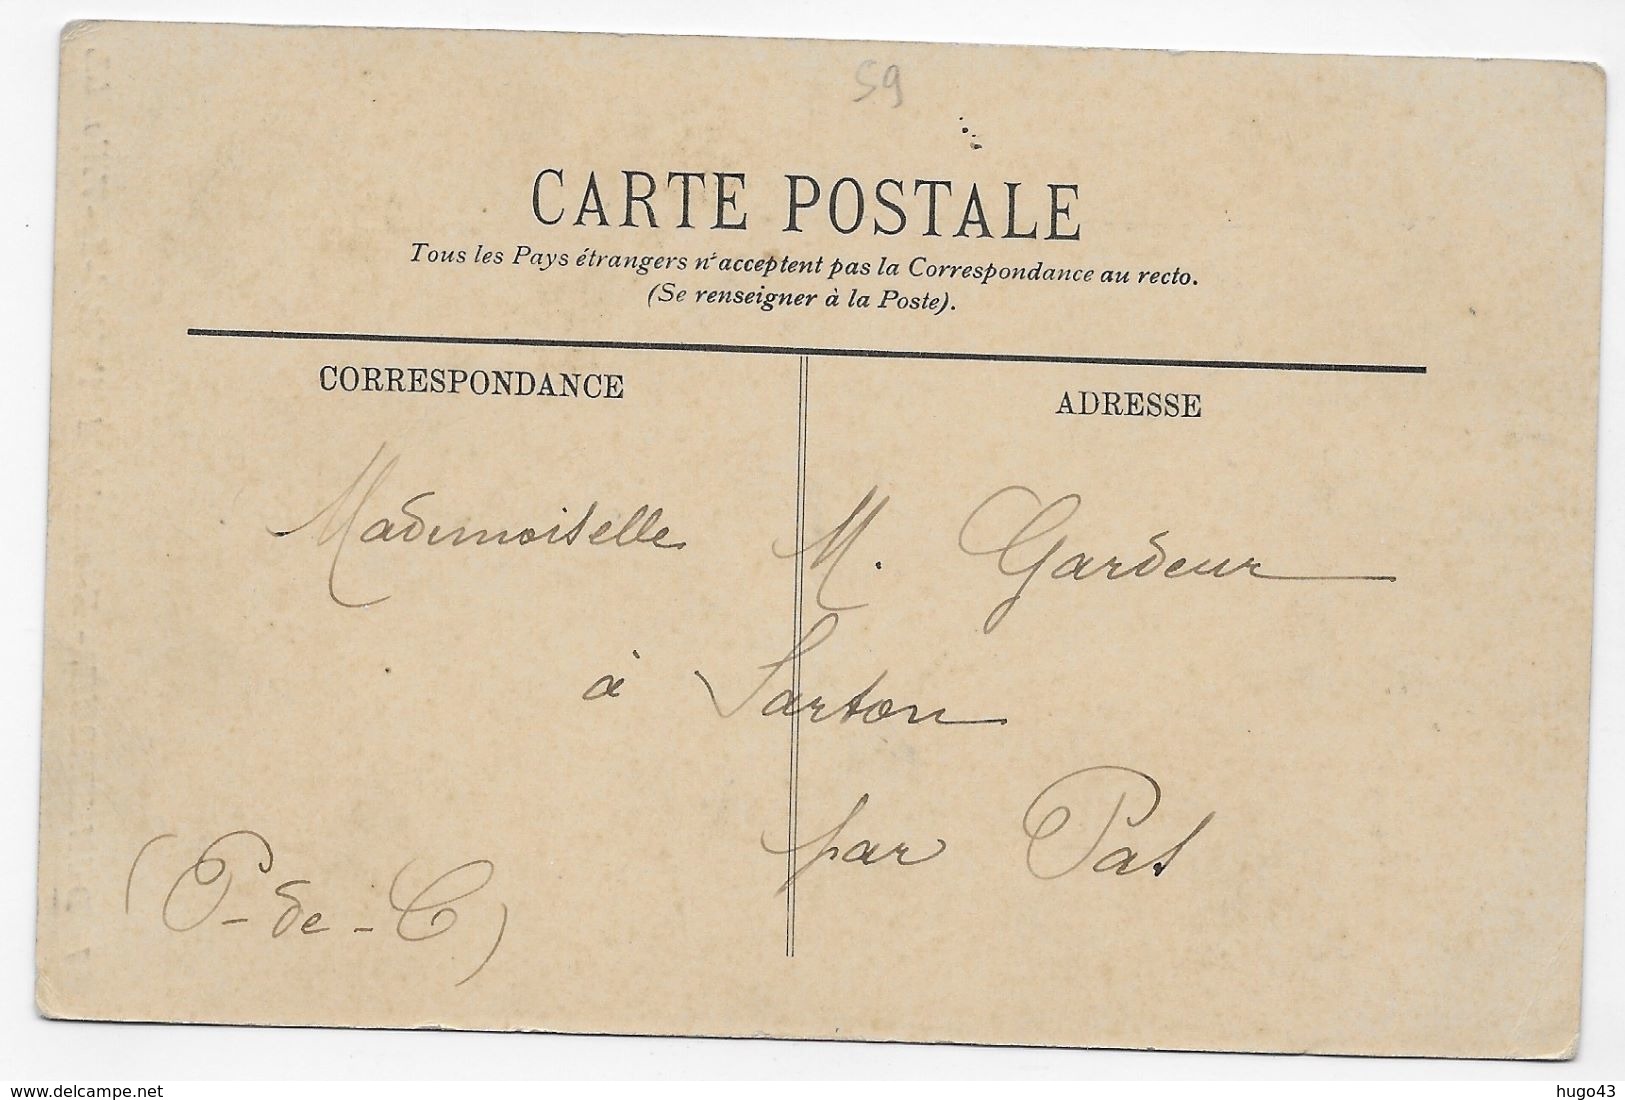 59
CARTE POSTALE
Tous les Pays étrangers n'acceptent pas la Correspondance au recto.
(Se renseigner à la Poste).
CORRESPONDANCE
ADRESSE
Mademoiselle M. Gardeur
à Sarton
par Pas
(P-de-C)
www.delcampe.net
hugo43